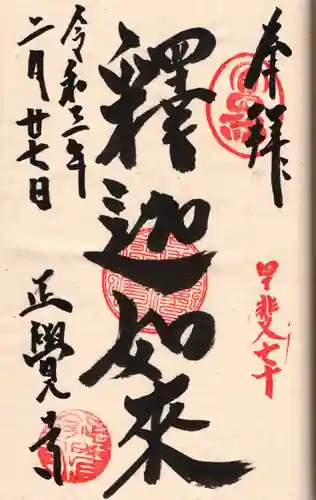 奉拝
甲斐七十
釋迦如来
令和三年
二月廿七日
正覺寺